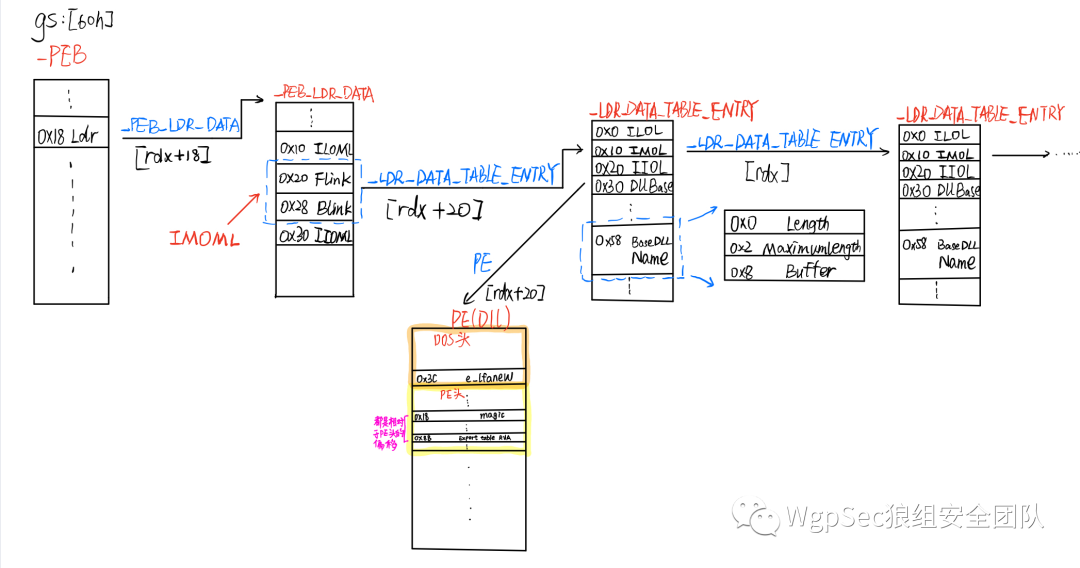 gs:[60h]
_PEB
0x18 Ldr
_PEB_LDR_DATA
[rdx+18]
_PEB_LDR_DATA
0x10 ILOML
0x20 Flink
0x28 Blink
0x30 IIOML
IMOML
_LDR_DATA_TABLE_ENTRY
[rdx+20]
_LDR_DATA_TABLE_ENTRY
0x0 ILOL
0x10 IMOL
0x20 IIOL
0x30 DllBase
0x58 BaseDLL
Name
_LDR_DATA_TABLE_ENTRY
[rdx]
0x0 Length
0x2 Maximumlength
0x8 Buffer
_LDR_DATA_TABLE_ENTRY
0x0 ILOL
0x10 IMOL
0x20 IIOL
0x30 DllBase
0x58 BaseDLL
Name
PE
[rdx+20]
PE(Dll)
DOS头
0x3C e_lfanew
PE头
0x18 magic
0x88 Export table RVA
都是相对
于PE头的
偏移
WgpSec狼组安全团队